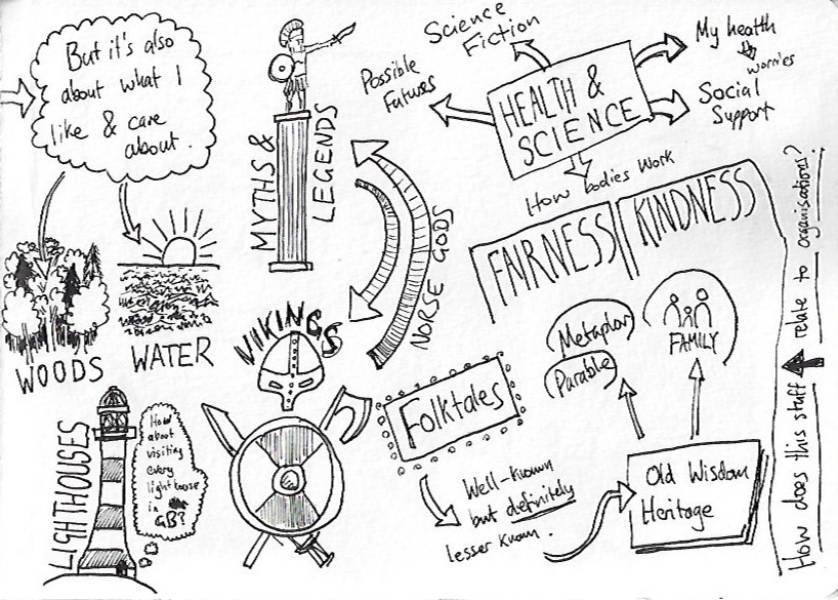 But it's also
about what I
like & care
about.
WOODS
WATER
LIGHTHOUSES
How
about
visiting
every
lighthouse
in GB?
MYTHS &
LEGENDS
NORSE GODS
VIKINGS
Science
Fiction
Possible
Futures
HEALTH &
SCIENCE
My health
worries
Social
Support
How bodies work
FAIRNESS
KINDNESS
Metaphor
Parable
FAMILY
Folktales
Well-known
but definitely
lesser known.
Old Wisdom
Heritage
How does this stuff relate to organisations?